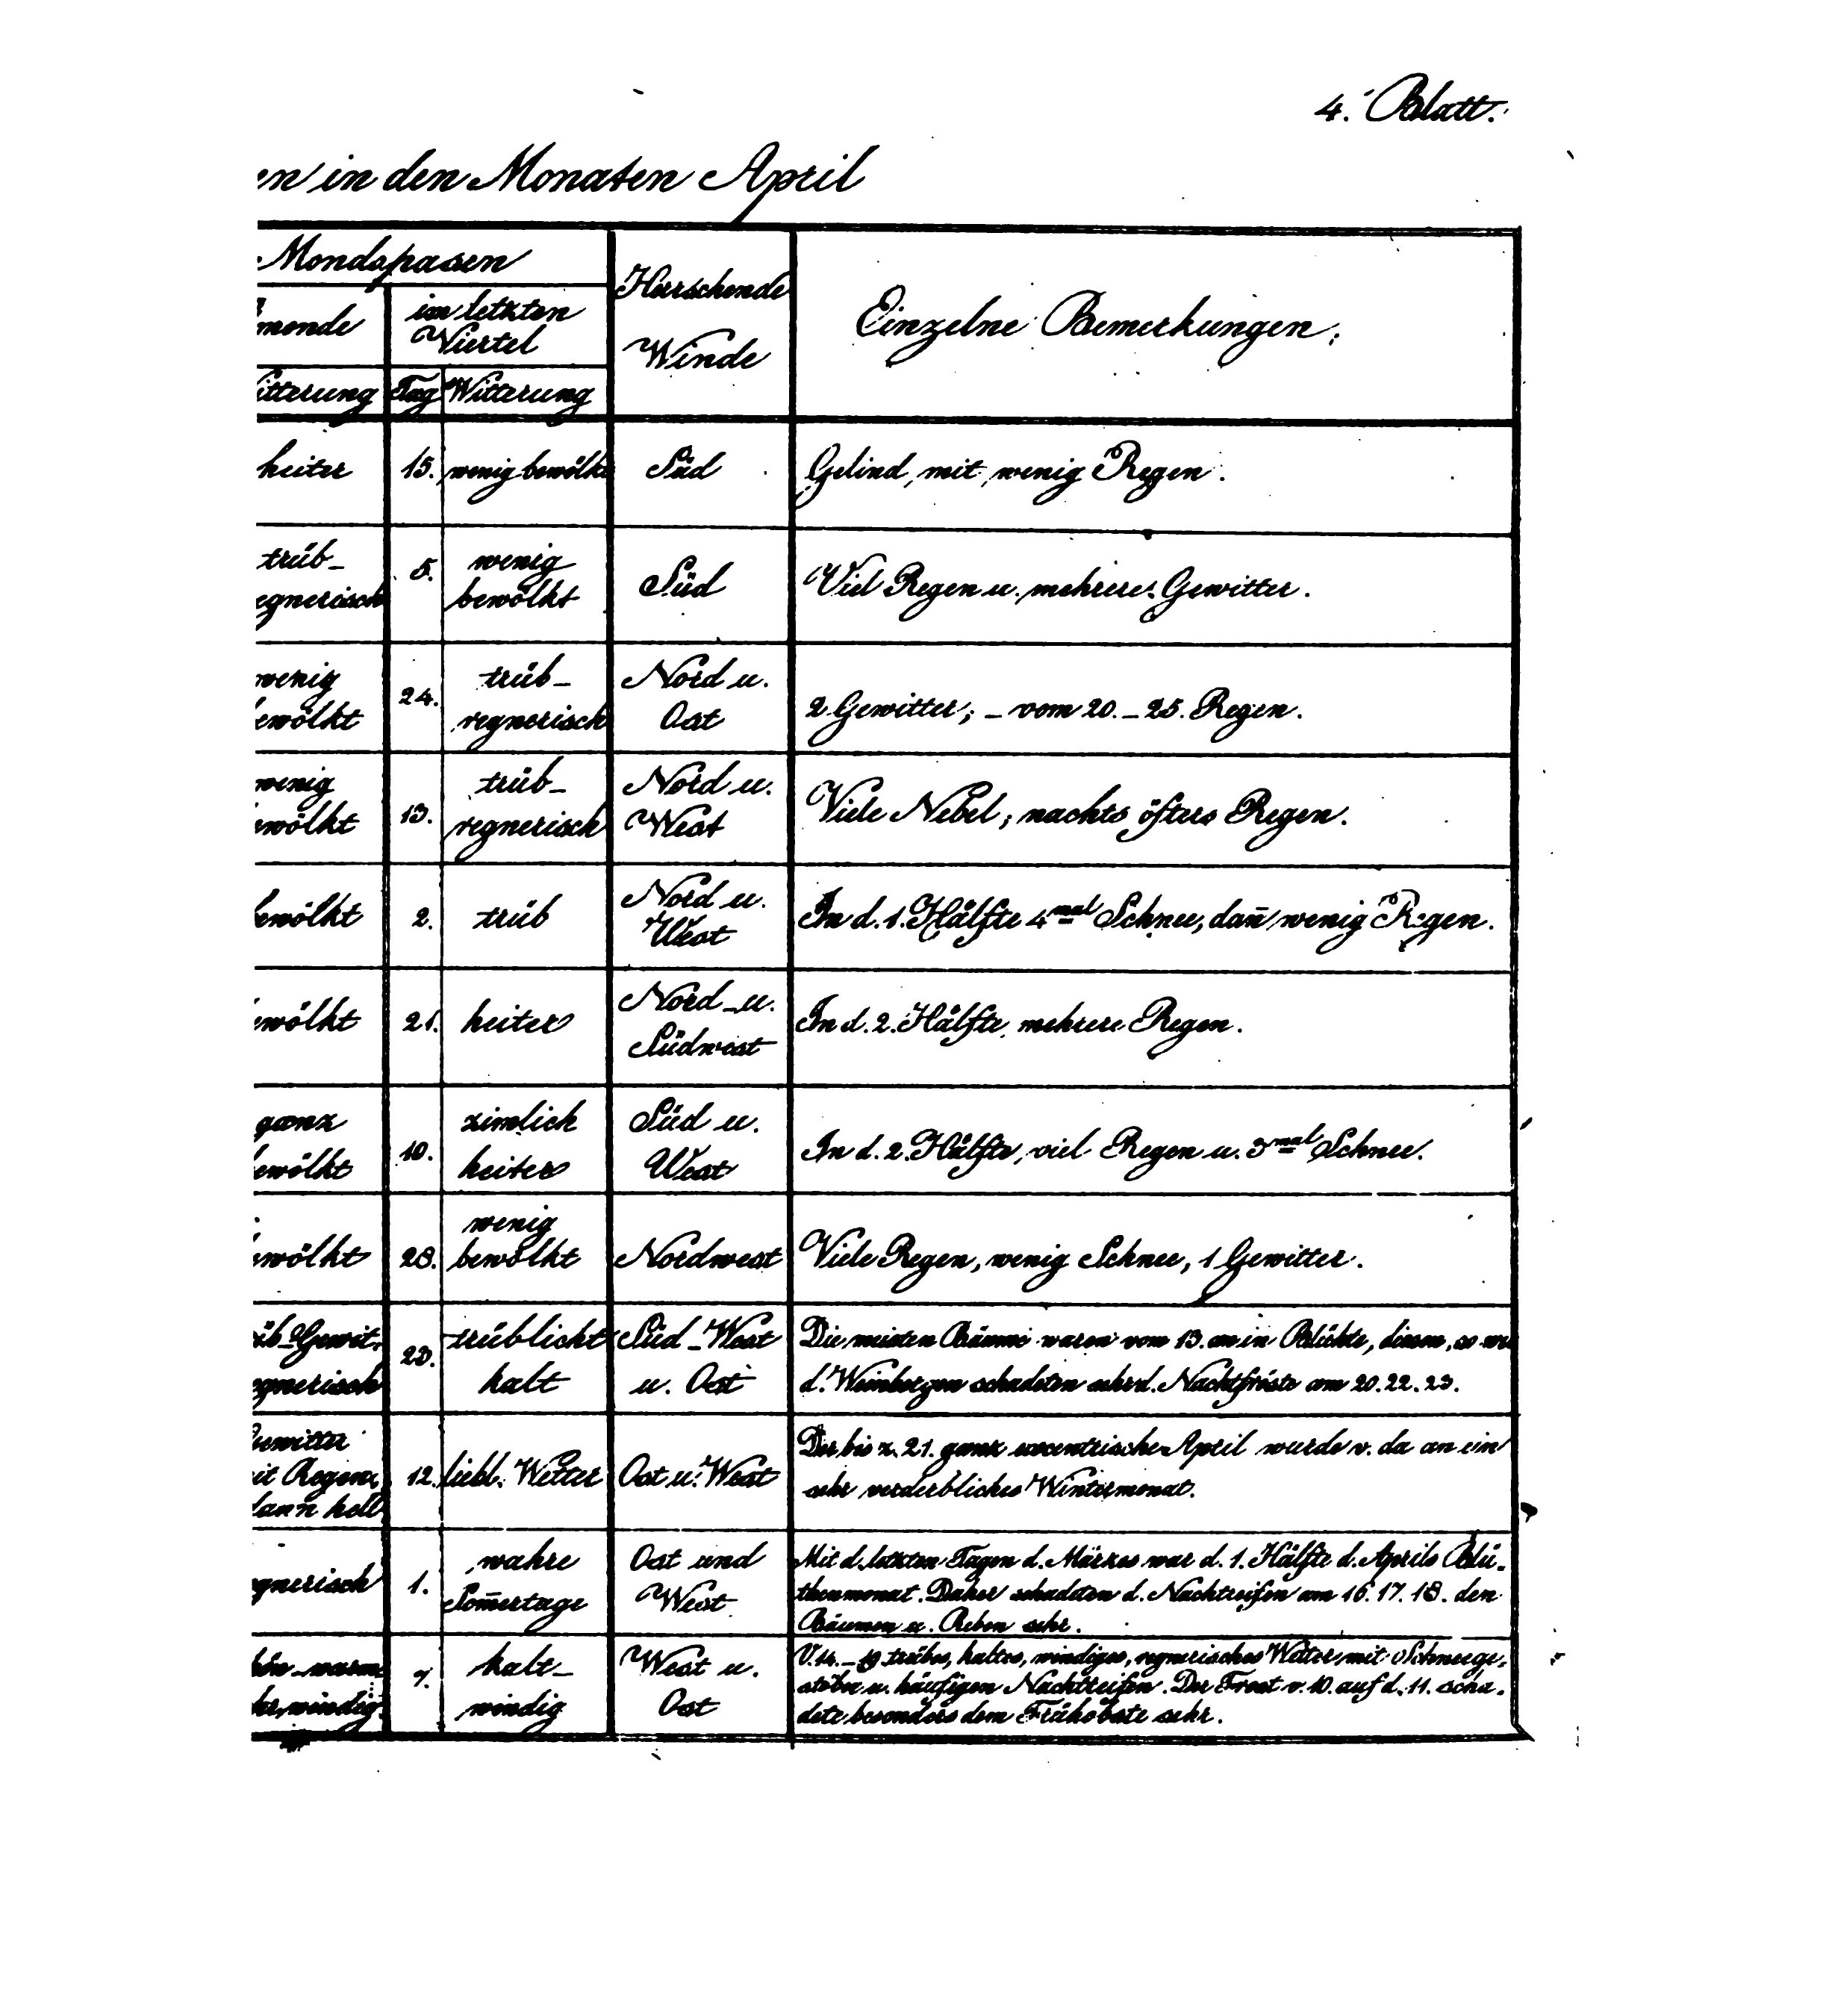 4. Blatt.
en in den Monaten April
Mondspasen
monde
im letzten
Viertel
Herrschende
Winde
Einzelne Bemerkungen.
itterung Tag Witterung
heiter 15. wenig bewölkt Süd Gelind, mit wenig Regen.
trüb-
egnerisch 5. wenig
bewölkt Süd Viel Regen u. mehrere Gewitter.
wenig
ewölkt 24. trüb-
regnerisch Nord u.
Ost 2 Gewitter; - vom 20. - 25. Regen.
wenig
ewölkt 13. trüb-
regnerisch Nord u.
West Viele Nebel; nachts öfters Regen.
ewölkt 2. trüb Nord u.
West In d. 1. Hälfte 4mal Schnee, dan̄ wenig Regen.
ewölkt 21. heiter Nord- u.
Südwest In d. 2. Hälfte mehrere Regen.
ganz
ewölkt 10. zimlich
heiter Süd u.
West In d. 2. Hälfte, viel Regen u. 3mal Schnee.
ewölkt 28. wenig
bewölkt Nordwest Viele Regen, wenig Schnee, 1 Gewitter.
üb-Gewit-
egnerisch 23. trüblicht
kalt Süd-West
u. Ost Die meisten Bäume waren vom 13. an in Blühte, diesen, so wie
d. Weinbergen schadeten sehr d. Nachtfröste am 20. 22. 23.
Gewitter
it Regen,
dann hell 12. liebl. Wetter Ost u. West Der bis z. 21. ganz excentrische April wurde v. da an ein
sehr verderbliches Wintermonat.
egnerisch 1. wahre
Som̄ertage Ost und
West Mit d. letzten Tagen d. Märzes war d. 1. Hälfte d. Aprils Blü-
thenmonat. Daher schadeten d. Nachtreifen am 16. 17. 18. den
Bäumen u. Reben sehr.
hön-warm
hr windig. 7. kalt-
windig West u.
Ost V. 14. - 19. trübes, kaltes, windiges, regnerisches Wetter mit Schneege-
stöber u. häufigen Nachtreifen. Der Frost v. 10. auf d. 11. scha-
dete besonders dem Frühobste sehr.